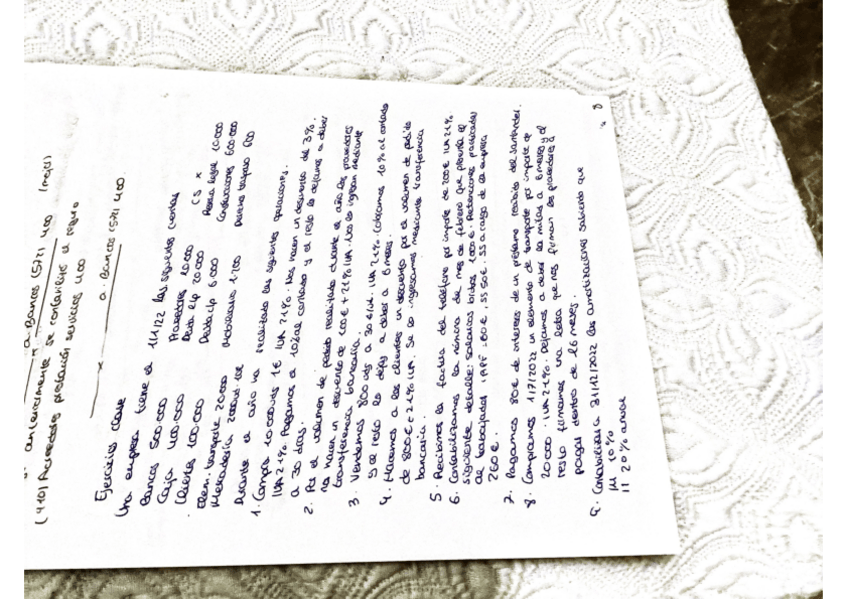 anteriormente se contabilizó el seguro
(410) Acreedores prestación servicios 400
a Bancos (572) 400
x
a Bancos (572) 400
Ejercicios clase
Una empresa tiene el 1/1/22 las siguientes cuentas
Bancos 500.000 Proveedores 10.000 CS x
Caja 400.000 Deuda l/p 20.000 Reserva legal 10.000
Clientes 100.000 Deuda c/p 6.000 Construcciones 600.000
Elem. transporte 20.000 Mobiliario 1.200
Mercaderías 2000ud. 10€
Durante el año ha realizado las siguientes operaciones.
1. Compra 10.000uds 1€ IVA 21%. Nos hacen un descuento del 3%.
IVA 21%. Pagamos a 10% al contado y el resto lo dejamos a deber
a 30 días.
2. Por el volumen de pedido realizado durante el año los proveedores
no hacen un descuento de 100€ + 21% IVA. 100 lo ingresan mediante
transferencia bancaria.
3. Vendemos 800uds a 30€/ud. IVA 21%. Cobramos 10% al contado
y el resto lo a deber a 6 meses.
4. Hacemos a los clientes un descuento por el volumen de pedido
de 800€ + 21% IVA. Se lo ingresamos mediante transferencia
bancaria.
5. Recibimos la factura del teléfono por importe de 200€ IVA 21%.
6. Contabilizamos la nómina de mes de febrero que presenta el
siguiente detalle: Salarios brutos 1000€. Retenciones practicadas
al trabajador: IRPF 80€. SS 50€. SS a cargo de la empresa
260€.
7. Pagamos 80€ de intereses de un préstamo recibido del Santander.
8. Compramos 1/7/2022 un elemento de transporte por importe de
20000. IVA 21%. Dejamos a deber la mitad a 6 meses y el
resto firmamos una letra que nos firman los proveedores a
pagar dentro de 16 meses.
9. Contabiliza a 31/12/2022 las amortizaciones sabiendo que
IM 10%
II 20% anual
8